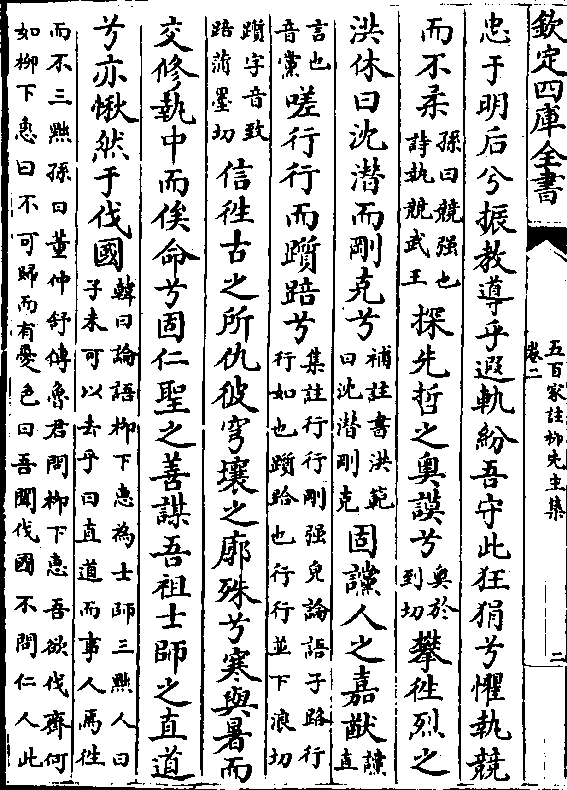 欽定四庫全書
五百家註柳先生集
卷二
二
忠于明后兮振教導乎遐軌紛吾守此狂狷兮懼執競
而不柔
孫曰競强也
詩執競武王
探先哲之奧謨兮
奧於
到切
攀徃烈之
洪休曰沈潛而剛克兮
補註書洪範
曰沈潛剛克
固讜人之嘉猷
讜
直
言也
音黨
嗟行行而躓踣兮
集註行行剛强皃論語子路行
行如也躓跲也行行並下浪切
躓字音致
踣蒲墨切
信徃古之所仇彼穹壤之廓殊兮寒與暑而
交修執中而俟命兮固仁聖之善謀吾祖士師之直道
兮亦愀然于伐國
韓曰論語柳下惠為士師三黜人曰
子未可以去乎曰直道而事人焉徃
而不三黜孫曰董仲舒傳魯君問柳下惠吾欲伐齊何
如柳下惠曰不可歸而有憂色曰吾聞伐國不問仁人此